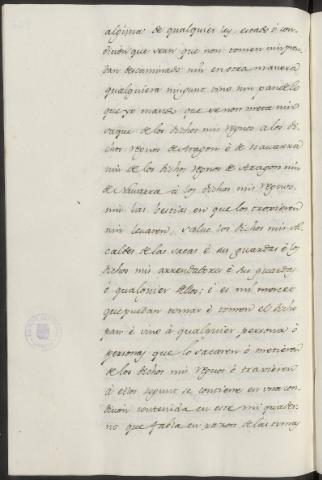 alguna de qualquier ley, estado ó con
dicion que sean que non tomen nin pue
dan descaminado nin en otra manera
qualquiera ningunt vino nin pan de lo
que yo mando que se non meta nin
saque de los dichos mis regnos a los di
chos regnos de Aragon é de Navarra
nin de los dichos regnos de Aragon nin
de Navarra á los dichos mis regnos,
nin las bestias en que los troxieren
nin levaren, salvo los dichos mis al
caldes de las sacas é sus guardas é los
dichos mis arrendadores é sus guardas
ó qualquier dellos; é es mi merced
que puedan tomar é tomen el dicho
pan é vino á qualquier persona ó
personas que lo sacaren ó metieren
de los dichos mis regnos é troxieren
á ellos segunt se contiene en una con
dicion contenida en este mi quader
no que fabla en razon de las tomas